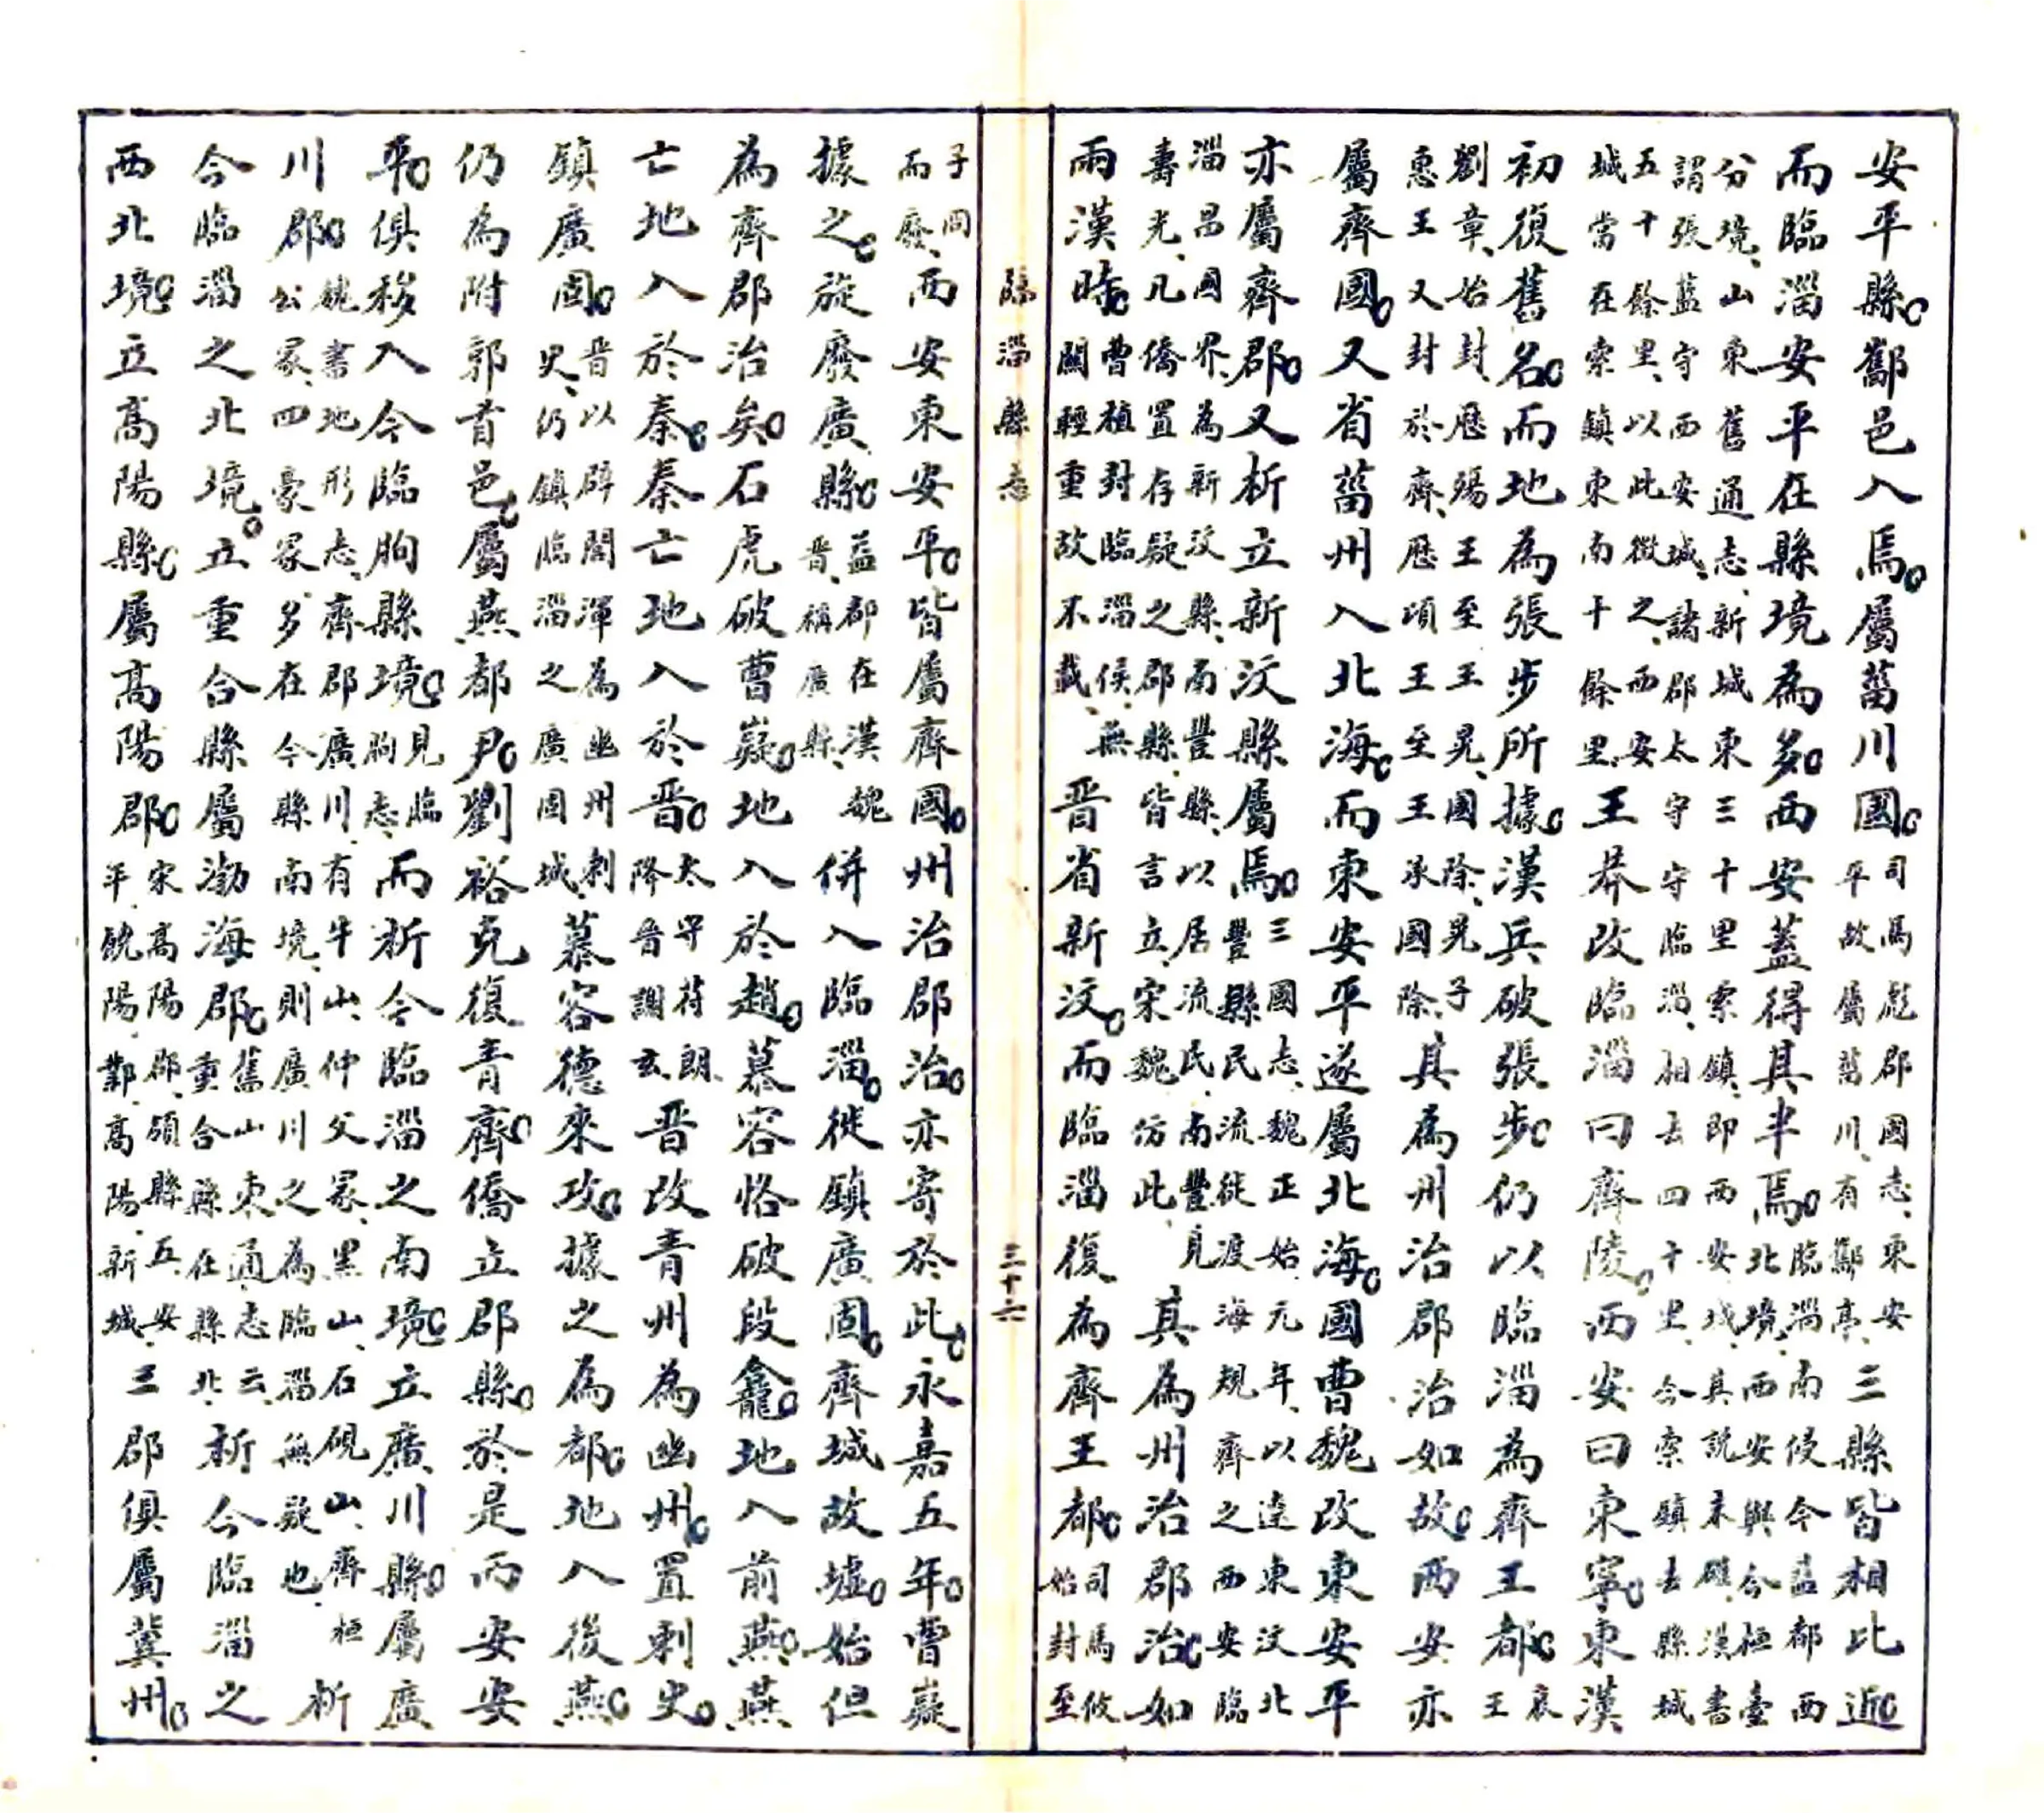 安平縣酅邑入焉屬菑川國司馬彪郡國志東安平故屬菑川有酅亭三縣皆相比近
而臨淄安平在縣境為多西安蓋得其半焉臨淄南侵今益都西北境西安與今桓臺
分境山東舊通志新城東三十里索鎮即西安城其說未確漢書謂張藍守西安城諸郡太守守臨淄相去四十里今索鎮去縣城
五十餘里以此徵之西安城當在索鎮東南十餘里王莽改臨淄曰齊陵西安曰東寧東漢
初復舊名而地為張步所據漢兵破張步仍以臨淄為齊王都哀王
劉章始封歷殤王至王晃國除晃子惠王又封於齊歷頃王王至王承國除其為州治郡治如故西安亦
屬齊國又省菑州入北海而東安平遂屬北海國曹魏改東安平
亦屬齊郡又析立新汶縣屬焉三國志魏正始元年以遼東汶北豐縣民流徙渡海規齊之西安臨
淄昌國界為新汶縣南豐縣以居流民南豐見壽光凡僑置存疑之郡縣皆言立宋魏仿此其為州治郡治如
兩漢時曹植封臨淄侯無關輕重故不載晋省新汶而臨淄復為齊王都司馬攸始封至
臨淄縣志
三十六
子冏而廢西安東安平皆屬齊國州治郡治亦寄於此永嘉五年曹嶷
據之旋廢廣縣益都在漢魏晋稱廣縣併入臨淄徙鎮廣固齊城故墟始但
為齊郡治矣石虎破曹嶷地入於趙慕容恪破段龕地入前燕燕
亡地入於秦秦亡地入於晋太守苻朗降晋謝玄晋改青州為幽州置剌史
鎮廣固晋以辟閭渾為幽州刺史仍鎮臨淄之廣固城慕容德來攻據之為都地入後燕
仍為附郭首邑屬燕都尹劉裕克復青齊僑立郡縣於是而安安
平俱移入今臨朐縣境見臨朐志而析今臨淄之南境立廣川縣屬廣
川郡魏書地形志齊郡廣川有牛山仲父冢黑山石硯山齊桓公冢四豪冢多在今縣南境則廣川之為臨淄無疑也析
今臨淄之北境立重合縣屬渤海郡舊山東通志云重合縣在縣北析今臨淄之
西北境立高陽縣屬高陽郡宋高陽郡領縣五安平饒陽鄴高陽新城三郡俱屬冀州